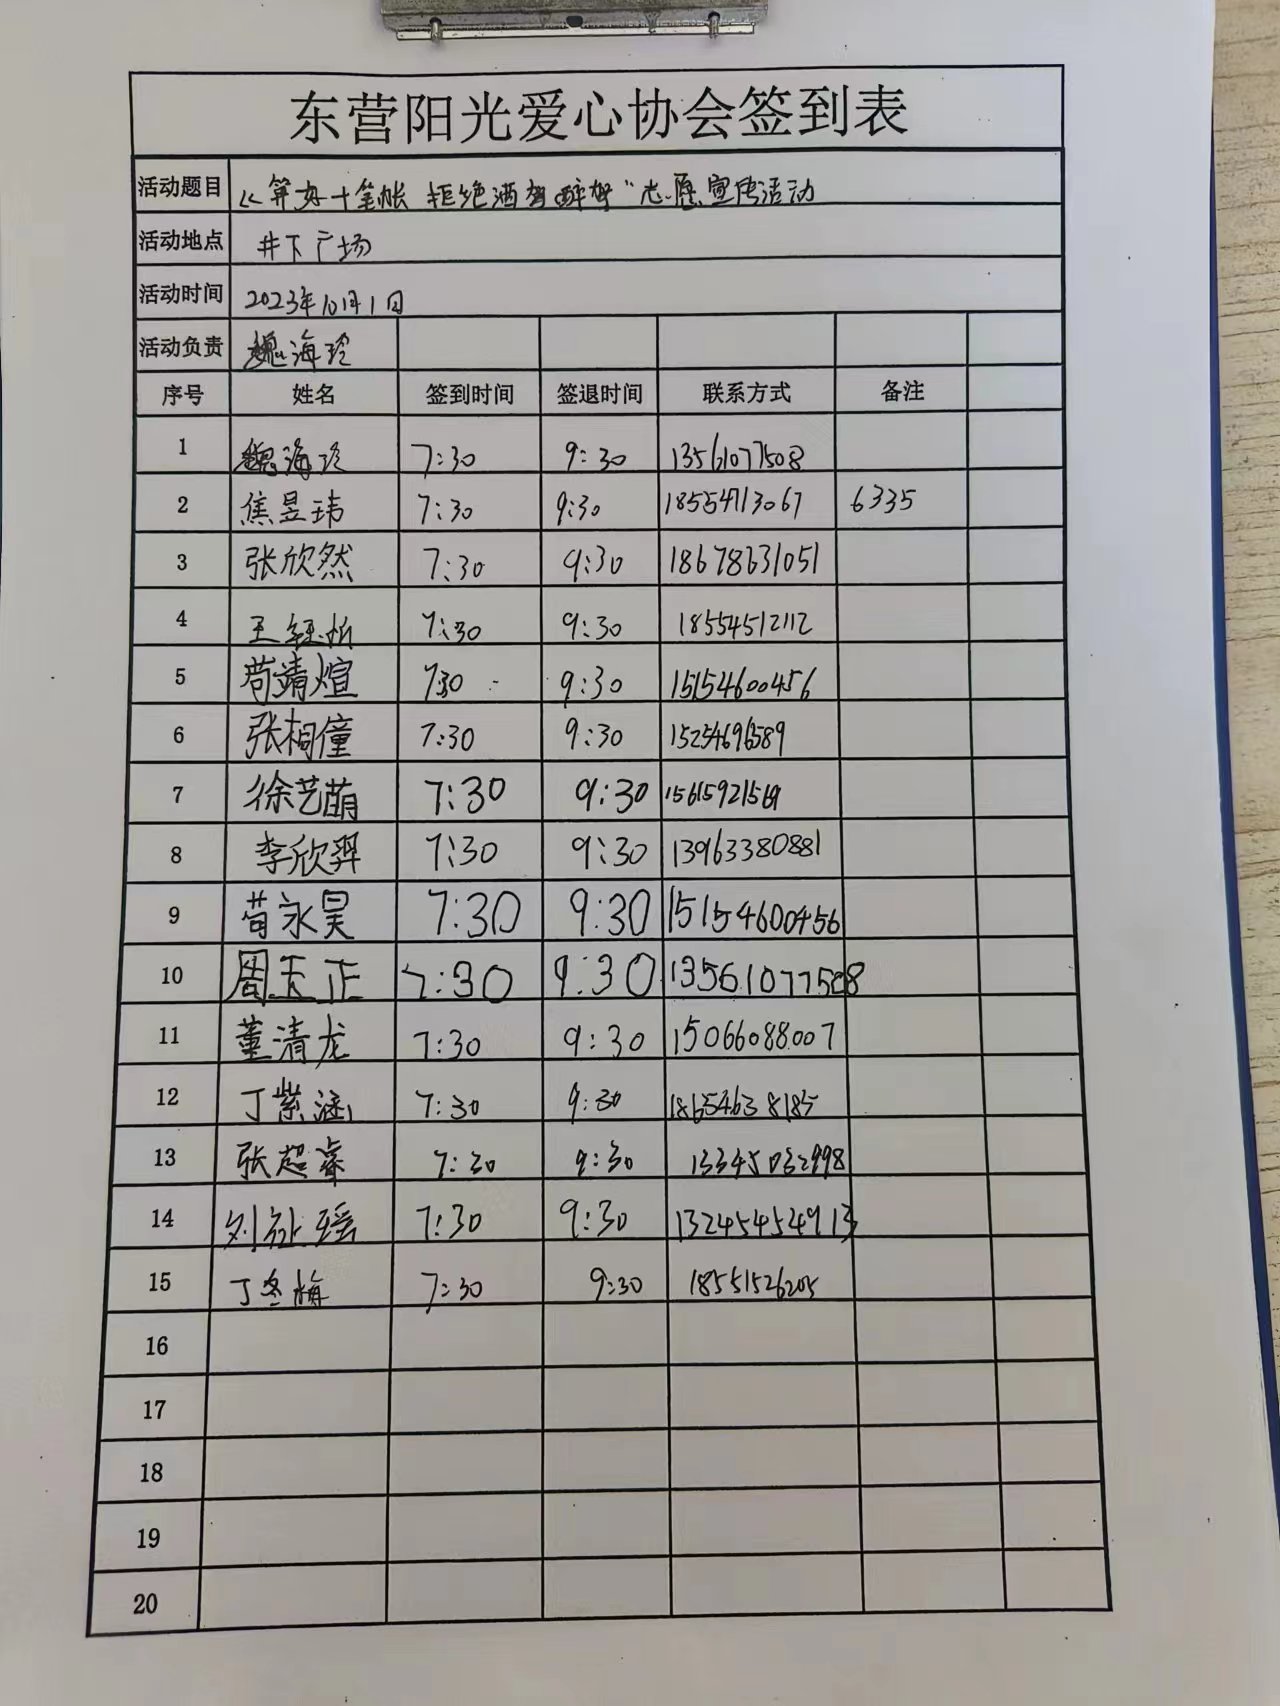 东营阳光爱心协会签到表
活动题目 “算好十笔帐 拒绝酒驾醉驾”志愿宣传活动
活动地点 井下广场
活动时间 2023年10月1日
活动负责 魏海玲
序号 姓名 签到时间 签退时间 联系方式 备注
1 魏海玲 7:30 9:30 13561077508
2 焦昱玮 7:30 9:30 18554713067 6335
3 张欣然 7:30 9:30 18678631051
4 王钰 7:30 9:30 18554512112
5 苟靖煊 7:30 9:30 15154600456
6 张桐僮 7:30 9:30
7 徐艺萌 7:30 9:30
8 李欣羿 7:30 9:30 13963380881
9 苟永昊 7:30 9:30 15154600456
10 周玉正 7:30 9:30 13561077508
11 董清龙 7:30 9:30 15066088007
12 丁紫涵 7:30 9:30 18654638185
13 张超睿 7:30 9:30
14 刘 瑶 7:30 9:30 13245454913
15 丁冬梅 7:30 9:30 18551526205
16
17
18
19
20